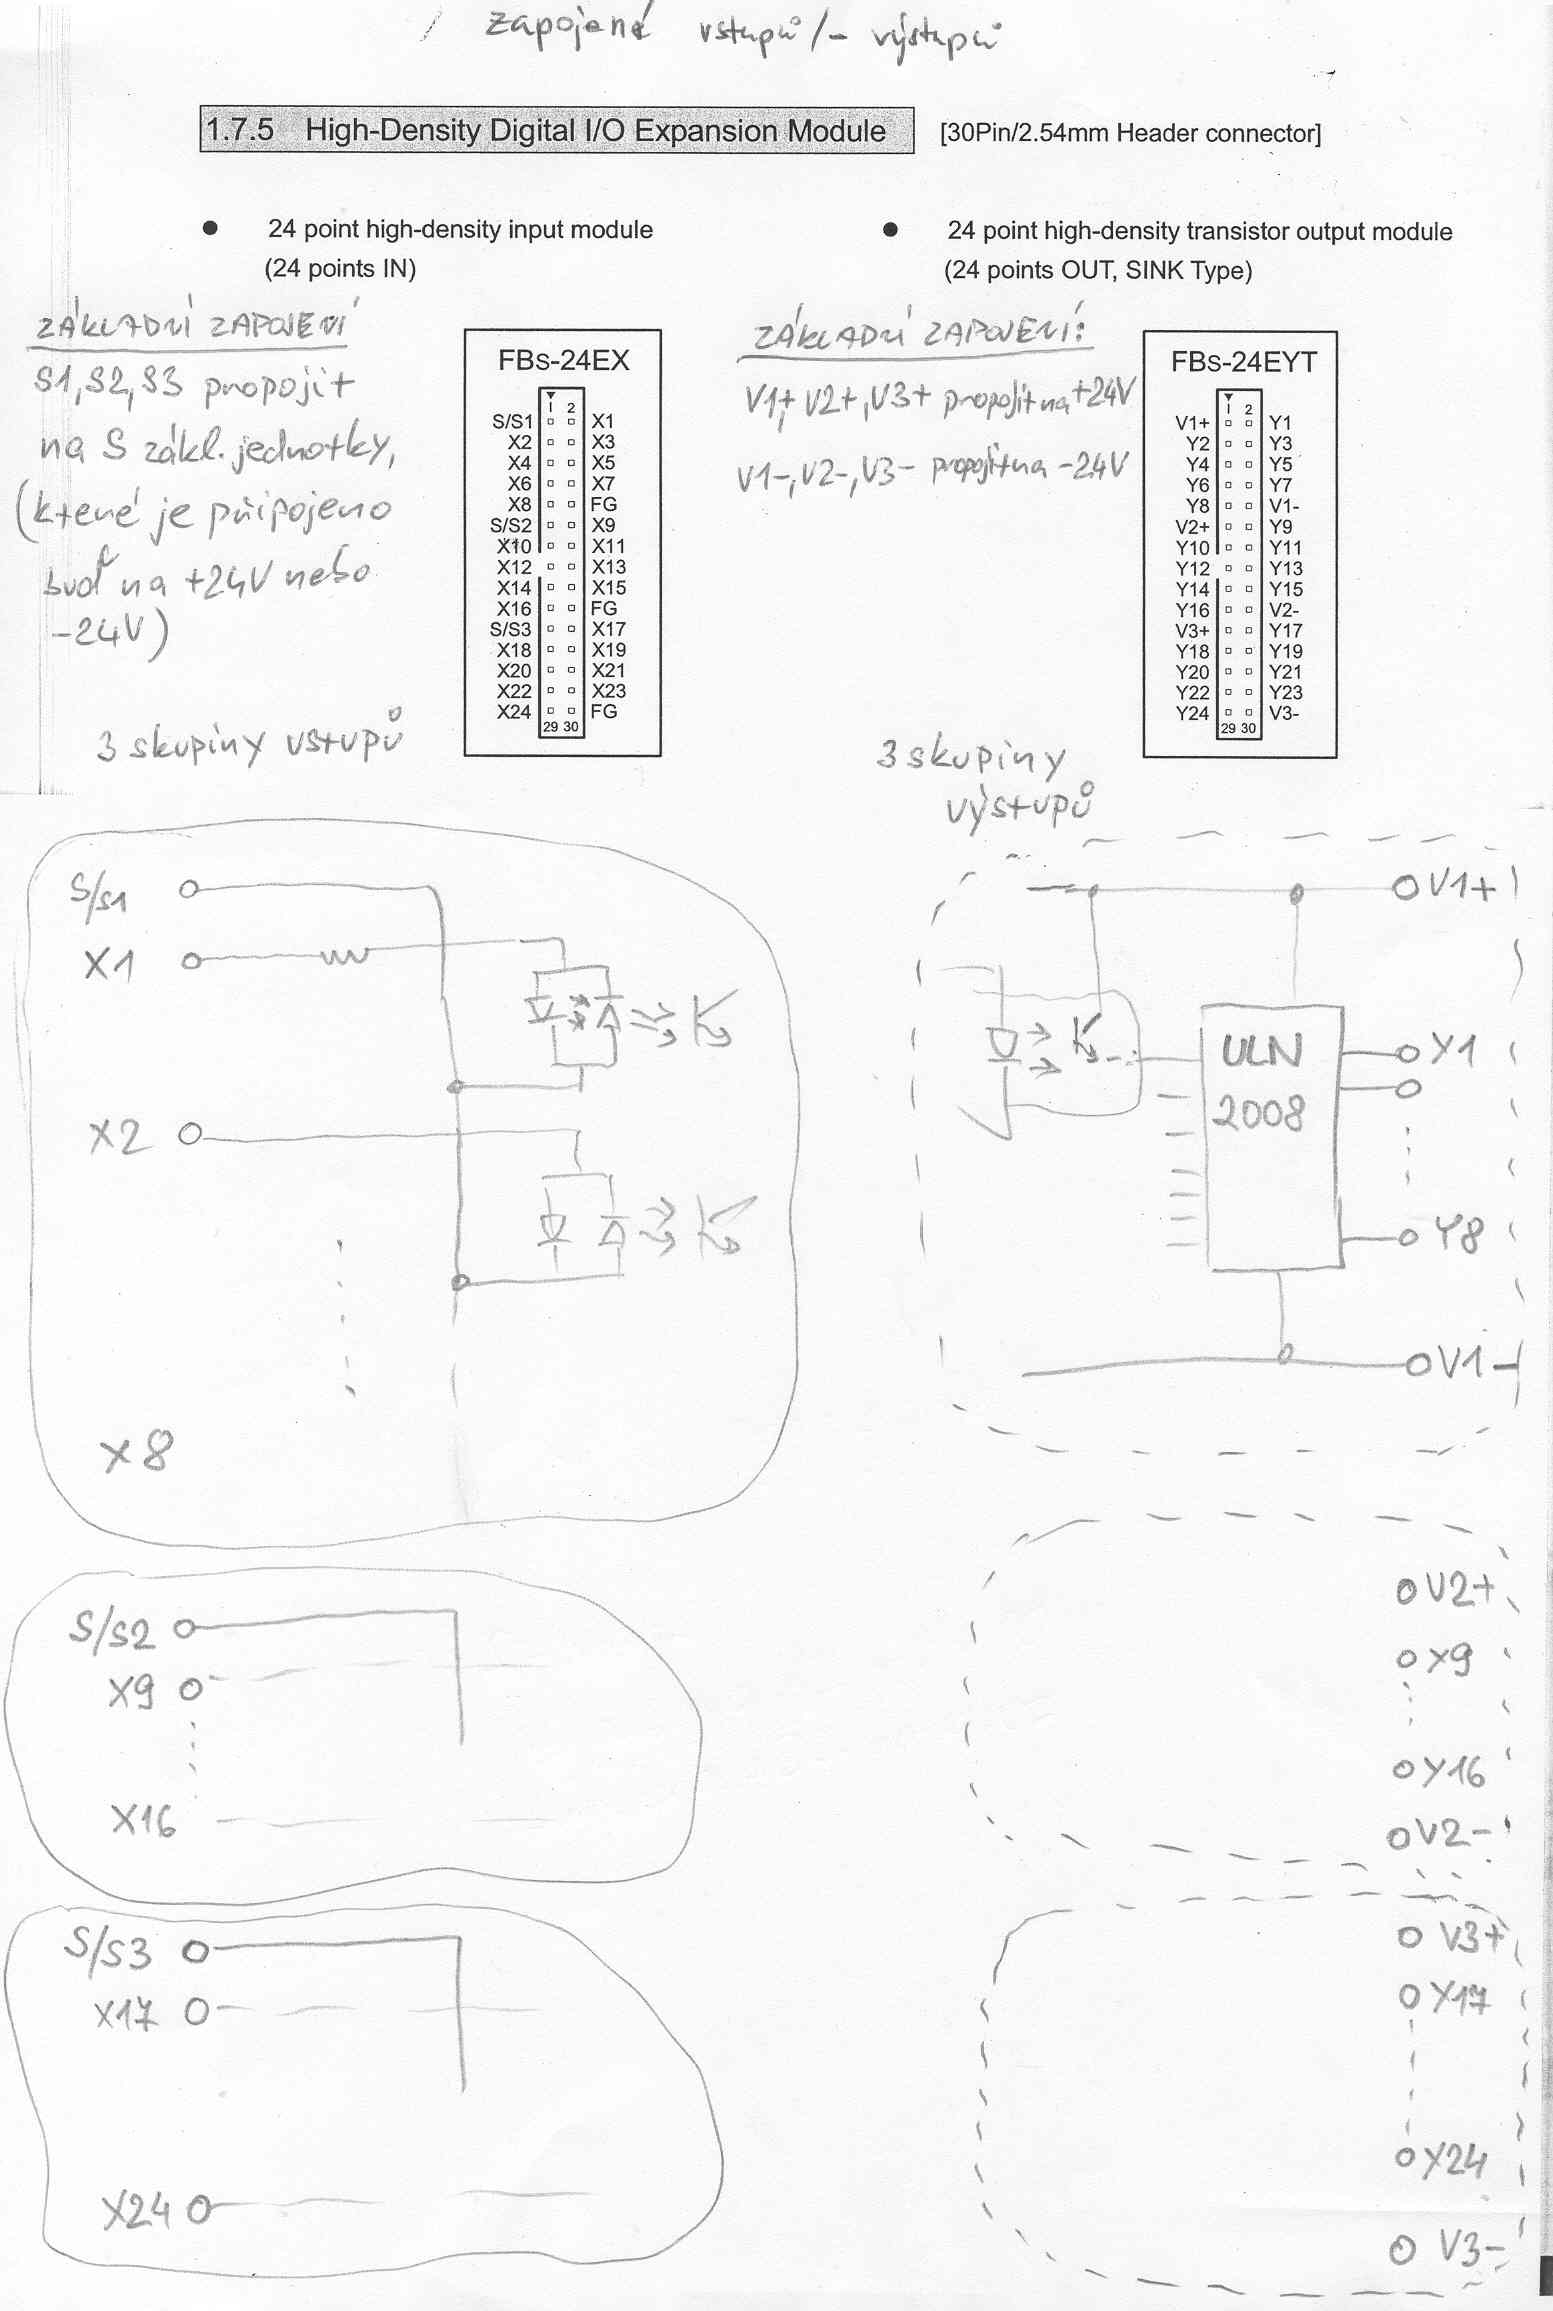 zapojené vstupů/- výstupů
1.7.5 High-Density Digital I/O Expansion Module [30Pin/2.54mm Header connector]
● 24 point high-density input module
(24 points IN)
● 24 point high-density transistor output module
(24 points OUT, SINK Type)
ZÁKLADNÍ ZAPOJENÍ
S1,S2,S3 propojit
na S zákl. jednotky,
(které je připojeno
buď na +24V nebo
-24V)
3 skupiny vstupů
FBs-24EX
1 2
S/S1 X1
X2 X3
X4 X5
X6 X7
X8 FG
S/S2 X9
X10 X11
X12 X13
X14 X15
X16 FG
S/S3 X17
X18 X19
X20 X21
X22 X23
X24 FG
29 30
ZÁKLADNÍ ZAPOJENÍ:
V1+, V2+, V3+ propojit na +24V
V1-, V2-, V3- propojit na -24V
3 skupiny
výstupů
FBs-24EYT
1 2
V1+ Y1
Y2 Y3
Y4 Y5
Y6 Y7
Y8 V1-
V2+ Y9
Y10 Y11
Y12 Y13
Y14 Y15
Y16 V2-
V3+ Y17
Y18 Y19
Y20 Y21
Y22 Y23
Y24 V3-
29 30
S/S1
X1
X2
X8
V1+
ULN
2008
Y1
Y8
V1-
S/S2
X9
X16
V2+
X9
Y16
V2-
S/S3
X17
X24
V3+
Y17
Y24
V3-